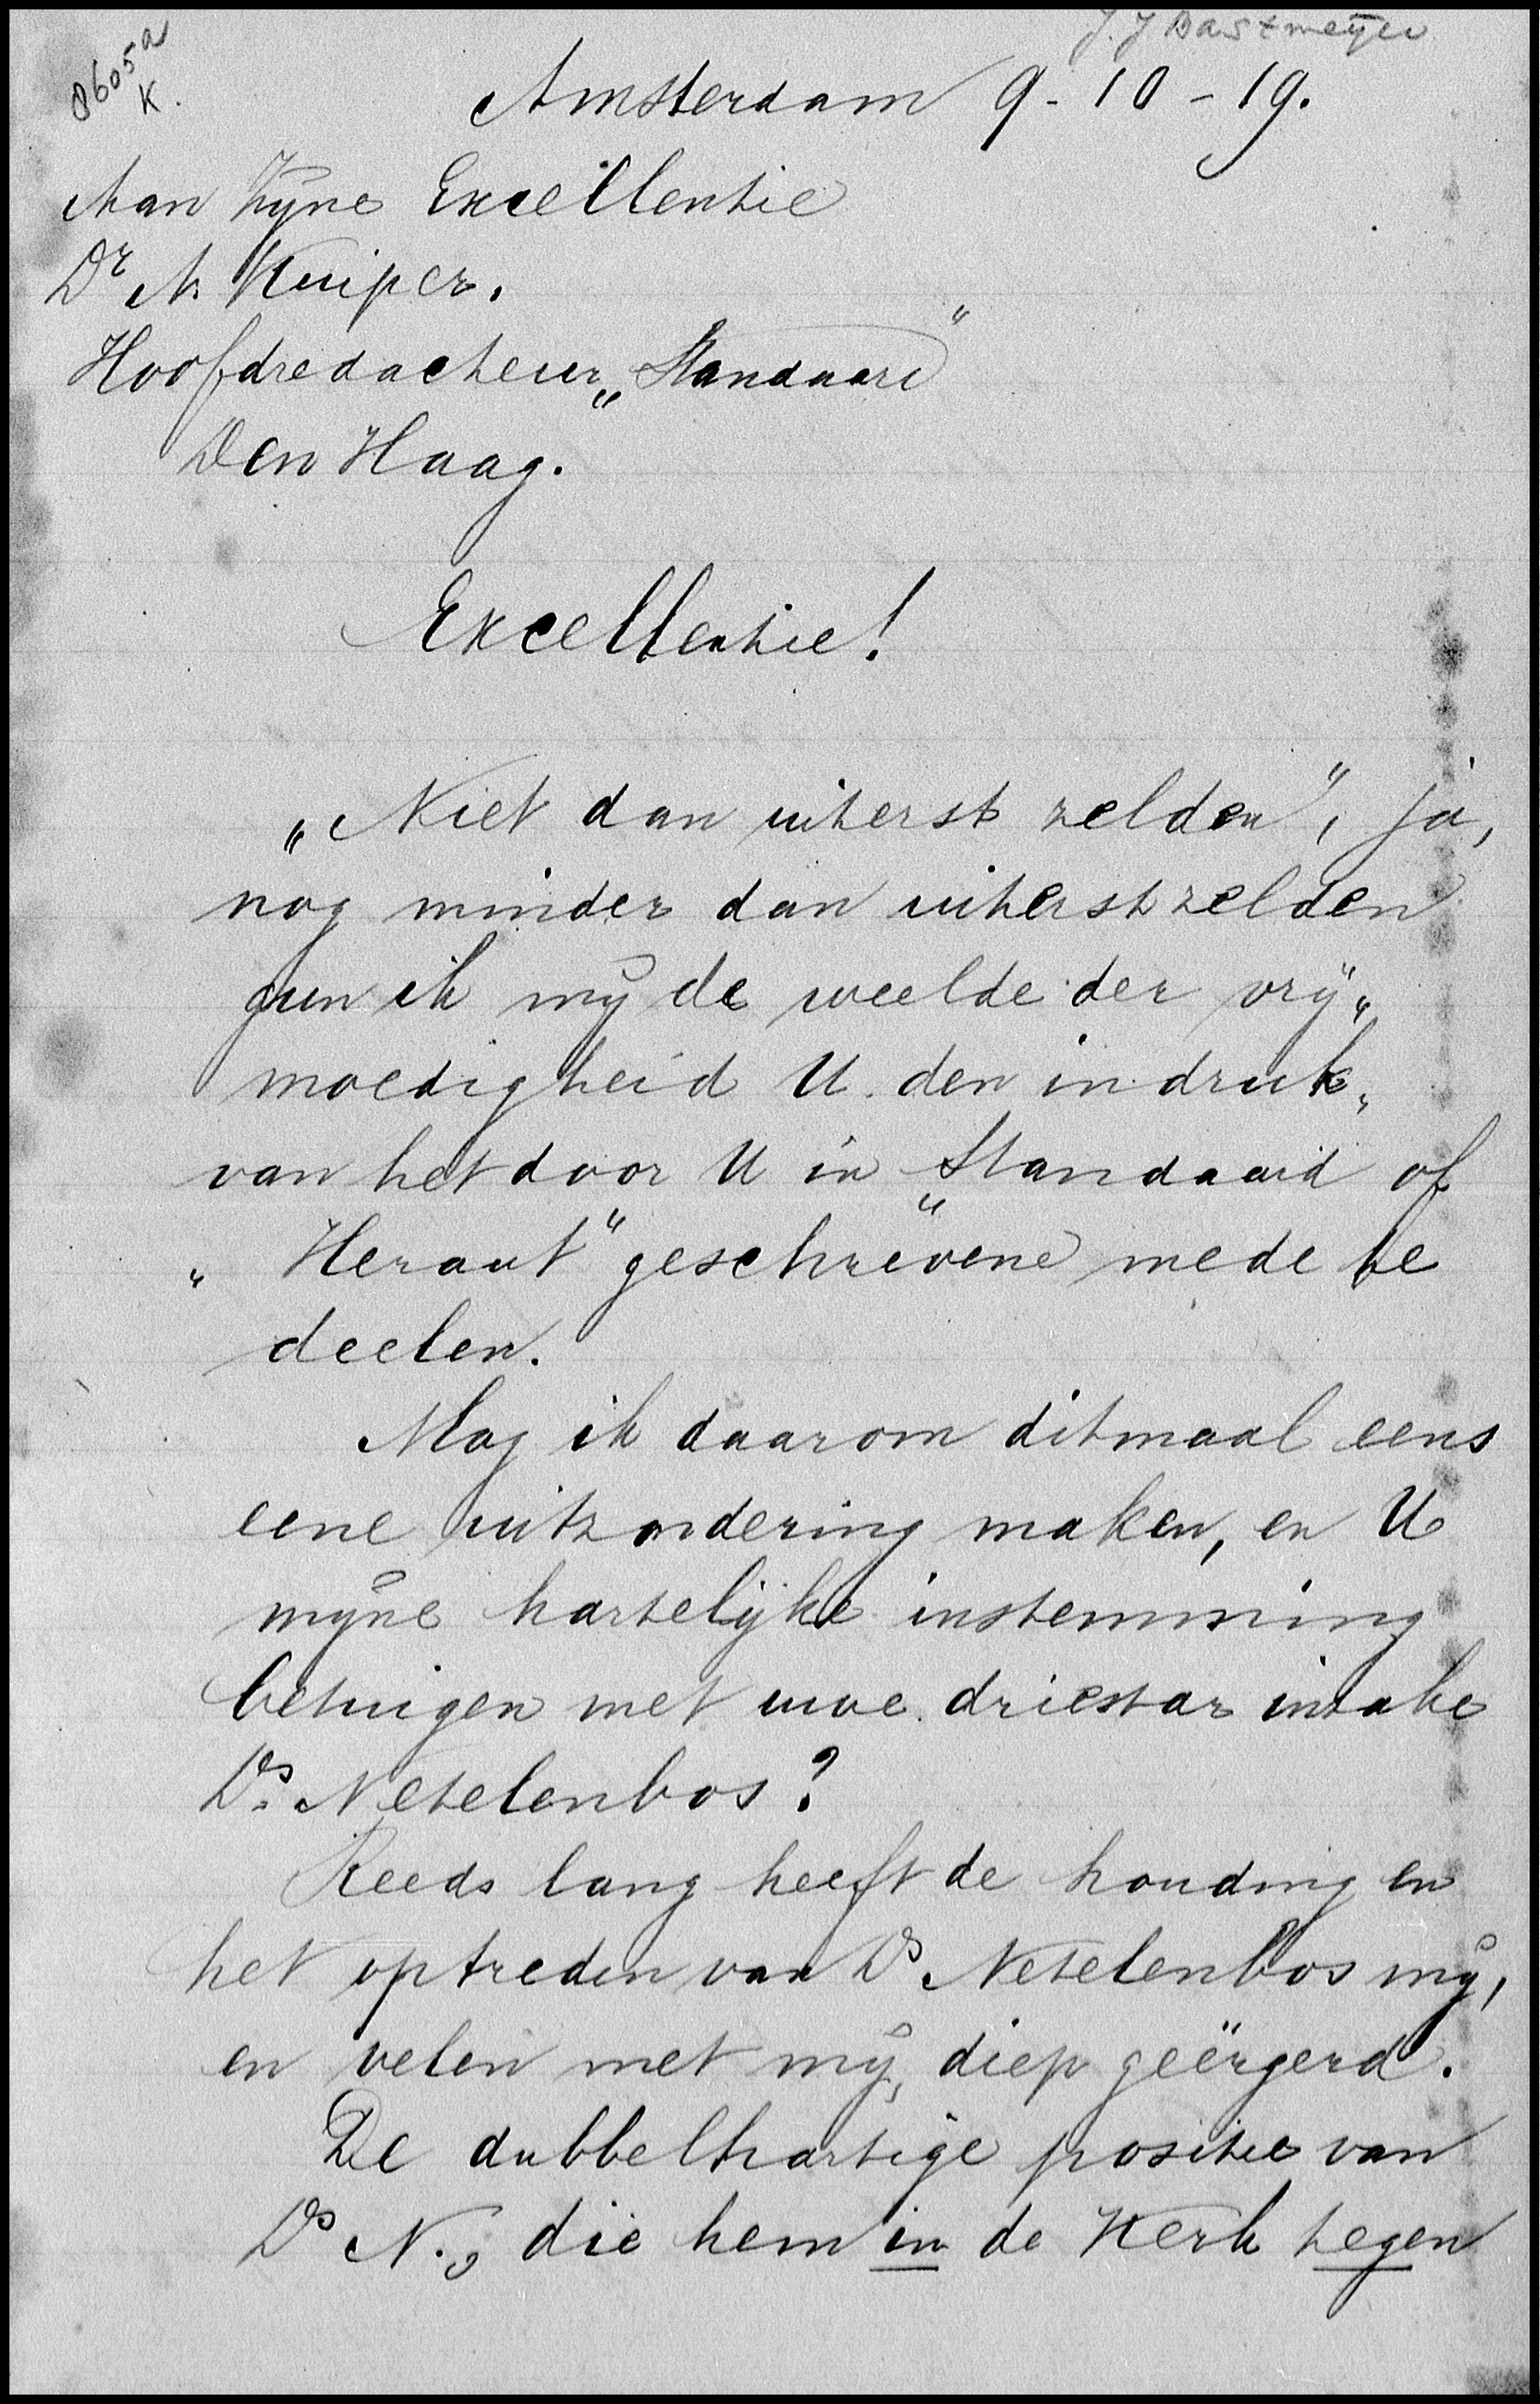 J. J Dastmeyer
8605a
K.
Amsterdam 9-10-19.
Aan Zijne Excellentie
Dr A. Kuiper.
Hoofdredacteur „Standaard"
Den Haag.
Excellentie!
„Niet dan uiterst zelden", ja,
nog minder dan uiterst zelden
gun ik mij de weelde der vrij„
moedigheid U den indruk„
van het door U in „Standaard of
„Heraut" geschrevene mede te
deelen.
Mag ik daarom ditmaal eens
eene uitzondering maken, en U
mijne hartelijke instemming
betuigen met uwe driestar inzake
Ds. Netelenbos?
Reeds lang heeft de houding en
het optreden van Ds Netelenbos mij,
en velen met mij, diep geërgerd.
De dubbelhartige positie van
Ds N., die hem in de Kerk tegen